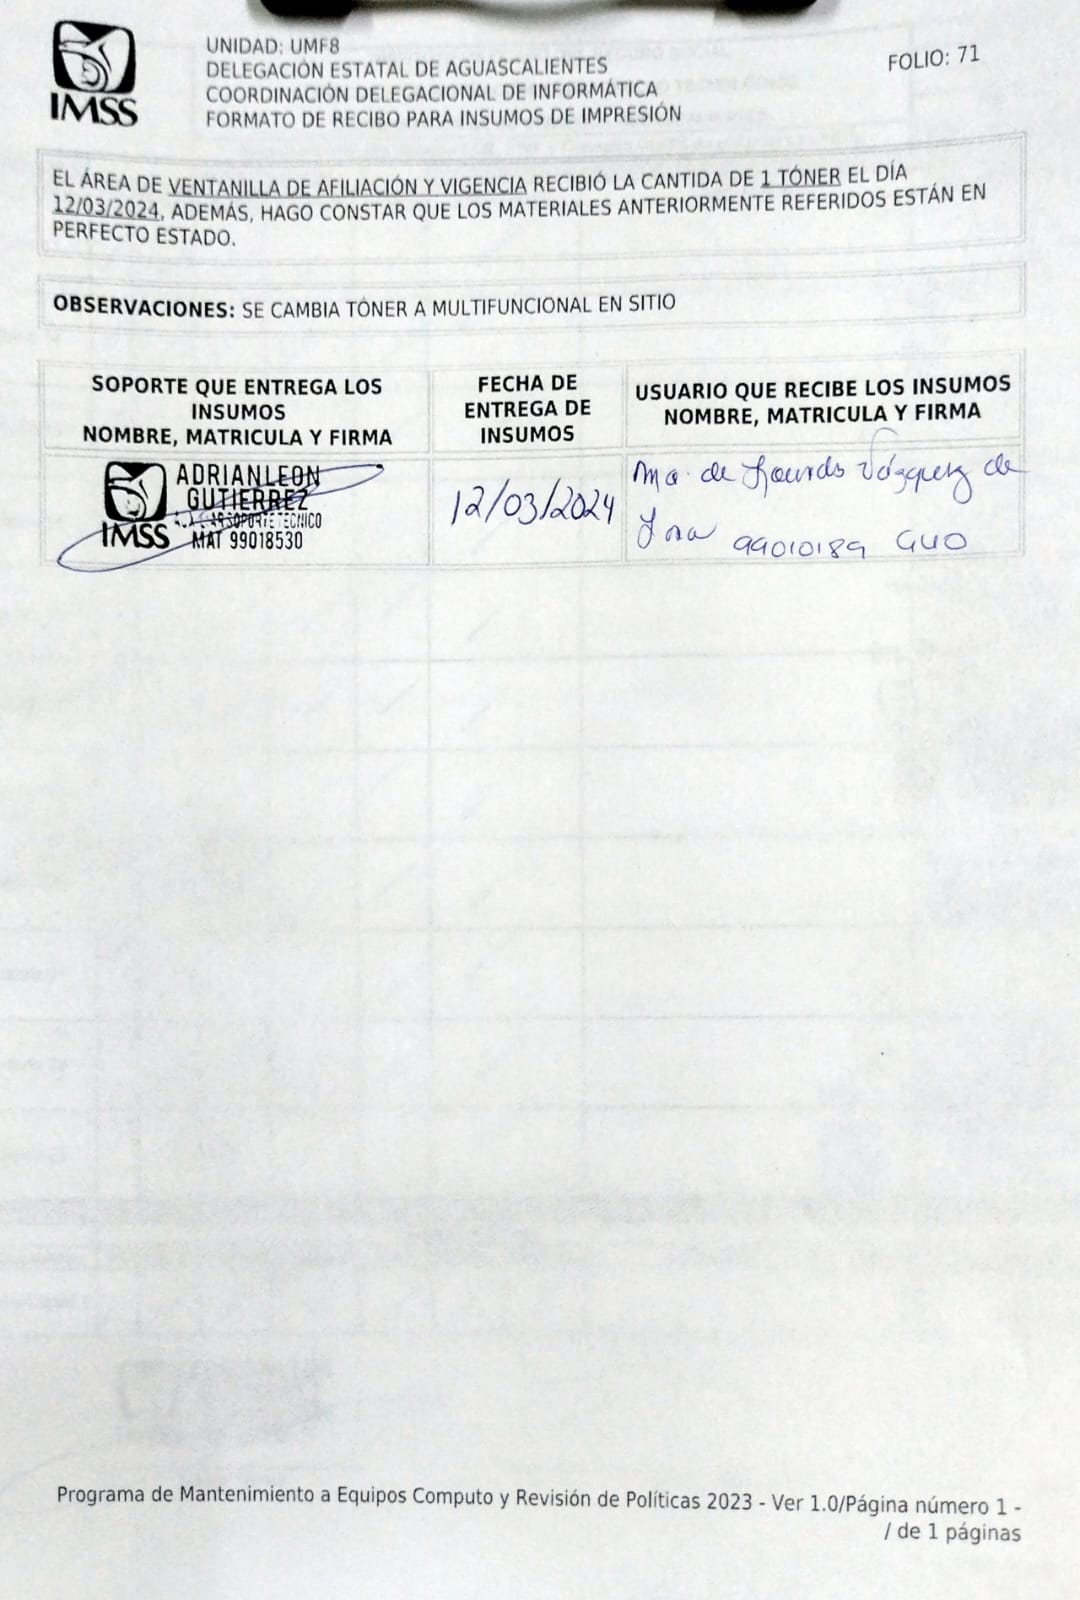 IMSS
UNIDAD: UMF8
DELEGACIÓN ESTATAL DE AGUASCALIENTES
COORDINACIÓN DELEGACIONAL DE INFORMÁTICA
FORMATO DE RECIBO PARA INSUMOS DE IMPRESIÓN
FOLIO: 71
EL ÁREA DE VENTANILLA DE AFILIACIÓN Y VIGENCIA RECIBIÓ LA CANTIDA DE 1 TÓNER EL DÍA
12/03/2024, ADEMÁS, HAGO CONSTAR QUE LOS MATERIALES ANTERIORMENTE REFERIDOS ESTÁN EN
PERFECTO ESTADO.
OBSERVACIONES: SE CAMBIA TÓNER A MULTIFUNCIONAL EN SITIO
SOPORTE QUE ENTREGA LOS
INSUMOS
NOMBRE, MATRICULA Y FIRMA
FECHA DE
ENTREGA DE
INSUMOS
USUARIO QUE RECIBE LOS INSUMOS
NOMBRE, MATRICULA Y FIRMA
ADRIAN LEON
GUTIERREZ
SOPORTE TECNICO
IMSS MAT 99018530
12/03/2024
Ma. de Lourdes Vázquez de
99010189
Programa de Mantenimiento a Equipos Computo y Revisión de Políticas 2023 - Ver 1.0/Página número 1 -
/ de 1 páginas